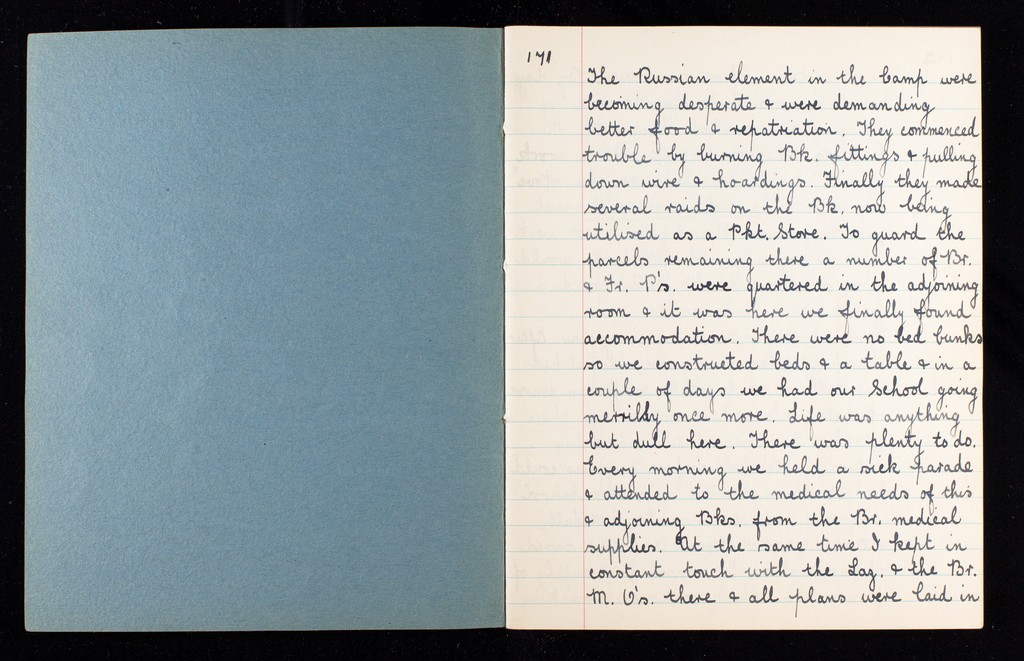 171
The Russian element in the Camp were
becoming desperate & were demanding
better food & repatriation. They commenced
trouble by burning Bk. fittings & pulling
down wire & hoardings. Finally they made
several raids on the Bk. now being
utilised as a Pkt. Store. To guard the
parcels remaining there a number of Br.
& Fr. P's. were quartered in the adjoining
room & it was here we finally found
accommodation. There were no bed bunks
so we constructed beds & a table & in a
couple of days we had our School going
merrilly once more. Life was anything
but dull here. There was plenty to do.
Every morning we held a sick parade
& attended to the medical needs of this
& adjoining Bks. from the Br. medical
supplies. At the same time I kept in
constant touch with the Lag. & the Br.
M. O's. there & all plans were laid in